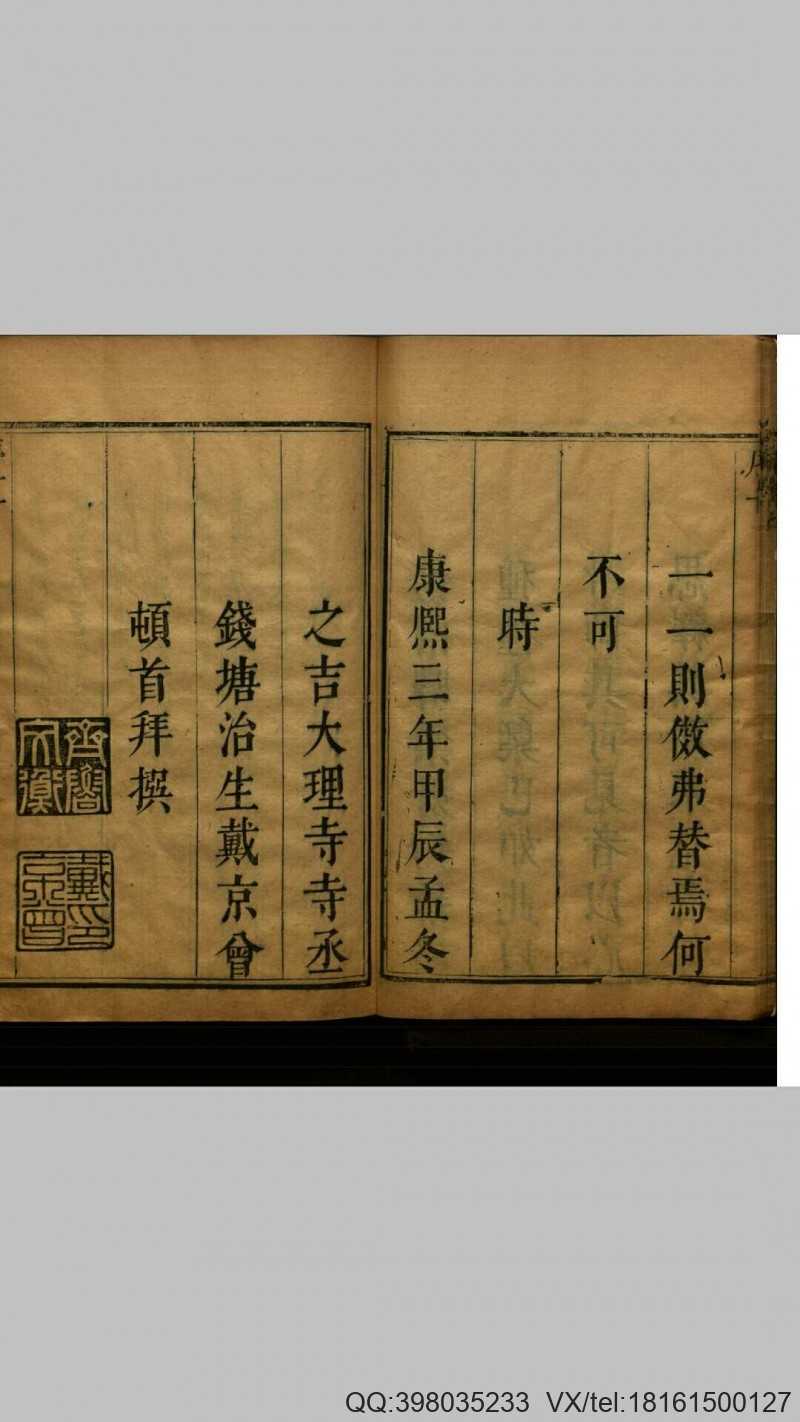 一一則倣弗替焉何
不可
時
康熙三年甲辰孟冬
之吉大理寺寺丞
錢塘治生戴京曾
頓首拜撰
戴京曾印
QQ:398035233 VX/tel:18161500127